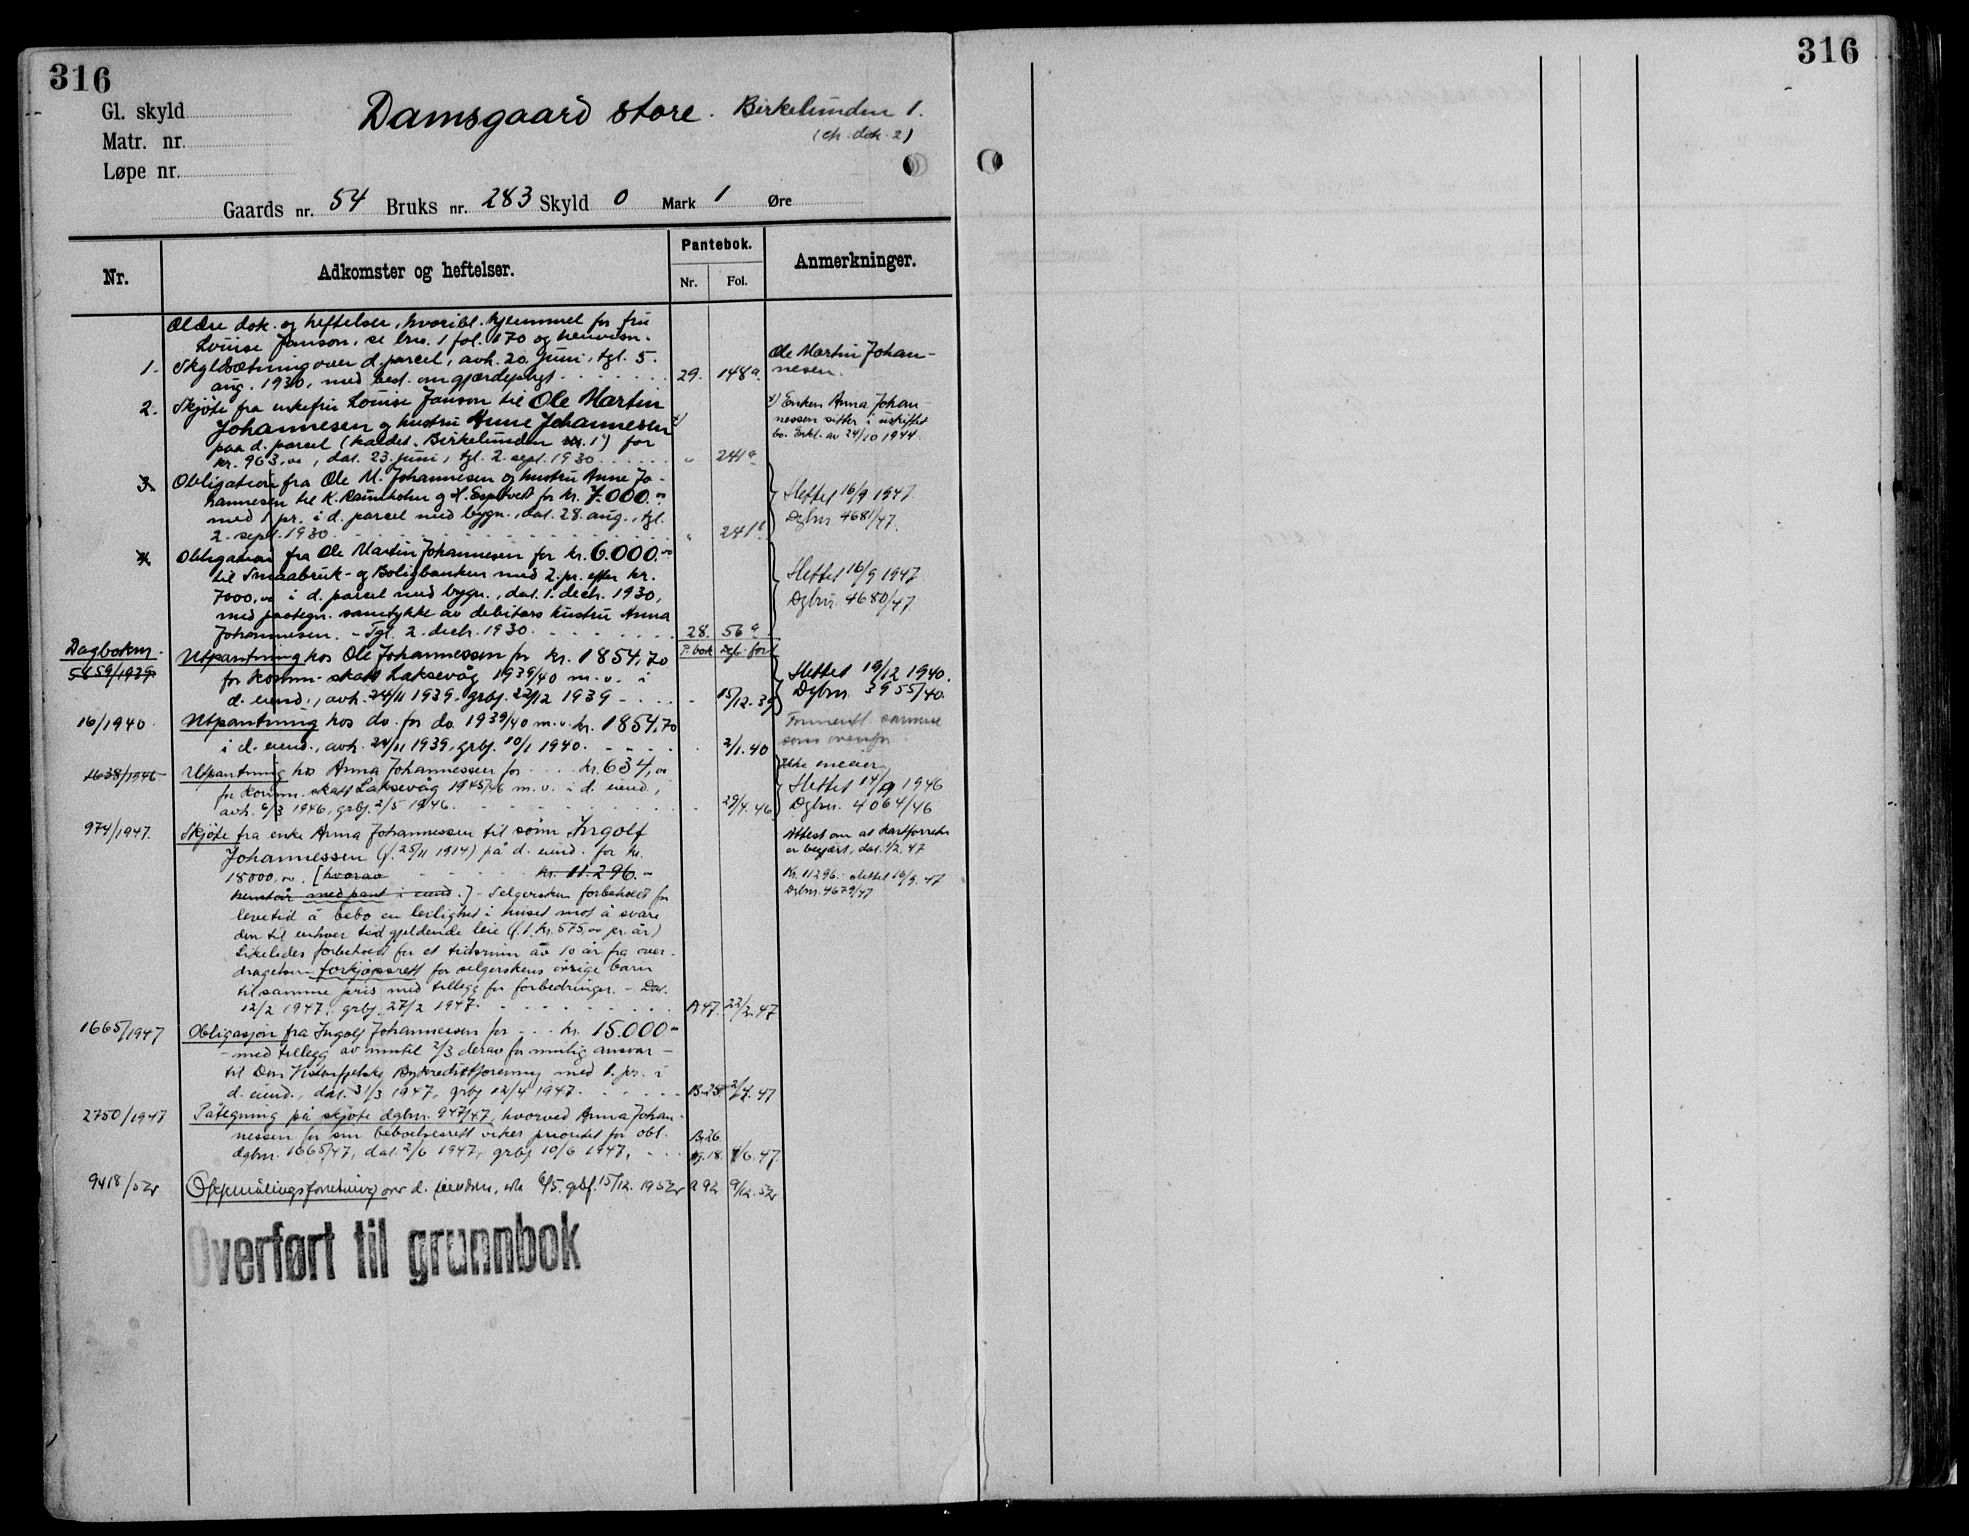 316
316
Gl. skyld
Matr. nr.
Løpe nr.
Damsgaard store. Birkelunden 1.
Gaards nr. 54 Bruks nr. 283 Skyld 0 Mark 1 Øre
Nr. Adkomster og heftelser. Pantebok. Nr. Fol. Anmerkninger.
Ældre dok. og heftelser, hvoribl. hjemmel for fru
Louise Janson, se 1 fol. 170 og henvisn.
1. Skyldsætning over d. parcel, avh. 20. juni, tgl. 5.
aug. 1930, med best. om gjærdepligt 29. 148a.
Ole Martin Johan-
nesen.
2. Skjøte fra enkefru Louise Janson til Ole Martin
Johannesen og hustru Anne Johannesen x)
paa d. parcel (kaldet "Birkelunden nr. 1") for
kr. 963,00, dat. 23. juni, tgl. 2. sept. 1930 " 241a
x) Enken Anna Johan-
nessen sitter i uskiftet
bo. Erkl. av 24/10 1944.
3. Obligation fra Ole M. Johannesen og hustru Anne Jo-
hannesen til K. og H. for kr. 7.000.00
med 1 pr. i d. parcel med bygn., dat. 28. aug., tgl.
2. sept. 1930 " 241b
Slettet 16/9 1947
Dgbnr 4681/47.
4. Obligation fra Ole Martin Johannesen for kr. 6.000.00
til Smaabruk- og Boligbanken med 2. pr. efter kr.
7000,00 i d. parcel med bygn., dat. 1. decbr. 1930,
med paategn. samtykke av debitors hustru Anna
Johannesen. - Tgl. 2. decbr. 1930. 28. 56a
Slettet 16/9 1947
Dgbnr. 4680/47
Dagboknr. P. bok
5859/1939 Utpantning hos Ole Johannessen for kr. 1854,70
for komm. skatt Laksevåg 1939/40 m.v. i
d. eiend., avh. 24/11 1939, grbf. 22/12 1939 - 15/12.39
Slettet 19/12 1940.
Dgbnr. 3955/40.
16/1940. Utpantning hos do. for do 1939/40 m.v. kr. 1854,70
i d. eiend., avh. 24/11 1939, grbf. 10/1 1940. 2/1.40
Formentl. samme
som ovenfor
1638/1946 Utpantning hos Anna Johannessen for kr. 634,00
for komm. skatt Laksevåg 1945/46 m.v. i d. eiend.,
avh. 6/3 1946, grbf. 2/5 1946. 29/4.46
Ikke eneeier
Slettet 14/9 1946
Dgbnr. 4064/46
974/1947. Skjøte fra enke Anna Johannessen til sønn Ingolf
Johannessen (f. 25/11 1914) på d. eiend. for kr.
18000,00. [hvorav kr. 11.296.00
henstår med pant i eiend.] - Selgersken forbeholdt for
levetid å bebo en leilighet i huset mot å svare
den til enhver tid gjeldende leie (f.t. kr. 575,00 pr. år)
Likeledes forbeholdt for et tidsrum av 10 år fra over-
dragelsen forkjøpsrett for selgerskens øvrige barn
til samme pris med tillegg for forbedringer. - Dat.
12/2 1947, grbf. 27/2 1947. A 47. 22/2.47
Attest om at kartforretn.
er begjært, dat. 1/2.47
Kr. 11296.- slettet 16/9.47
Dgbnr. 4679/47
1665/1947 Obligasjon fra Ingolf Johannessen for kr. 15.000.00
- med tillegg av inntil 2/3 derav for mulig ansvar -
til Den Vestenfjelske Bykredittforening med 1. pr. i
d. eiend., dat. 31/3 1947, grbf 12/4 1947. B.25 2/4.47
2750/1947 Påtegning på skjøte dgbnr. 947/47, hvorved Anna Johan-
nessen for sin beboelsesrett viker prioritet for obl.
dgbnr. 1665/47, dat. 2/6 1947, grbf 10/6 1947. B.26 4/6.47
9418/52 Oppmålingsforretning over d. eiendom, grbf. 15/12. 1952 A 92 9/12.52
Overført til grunnbok